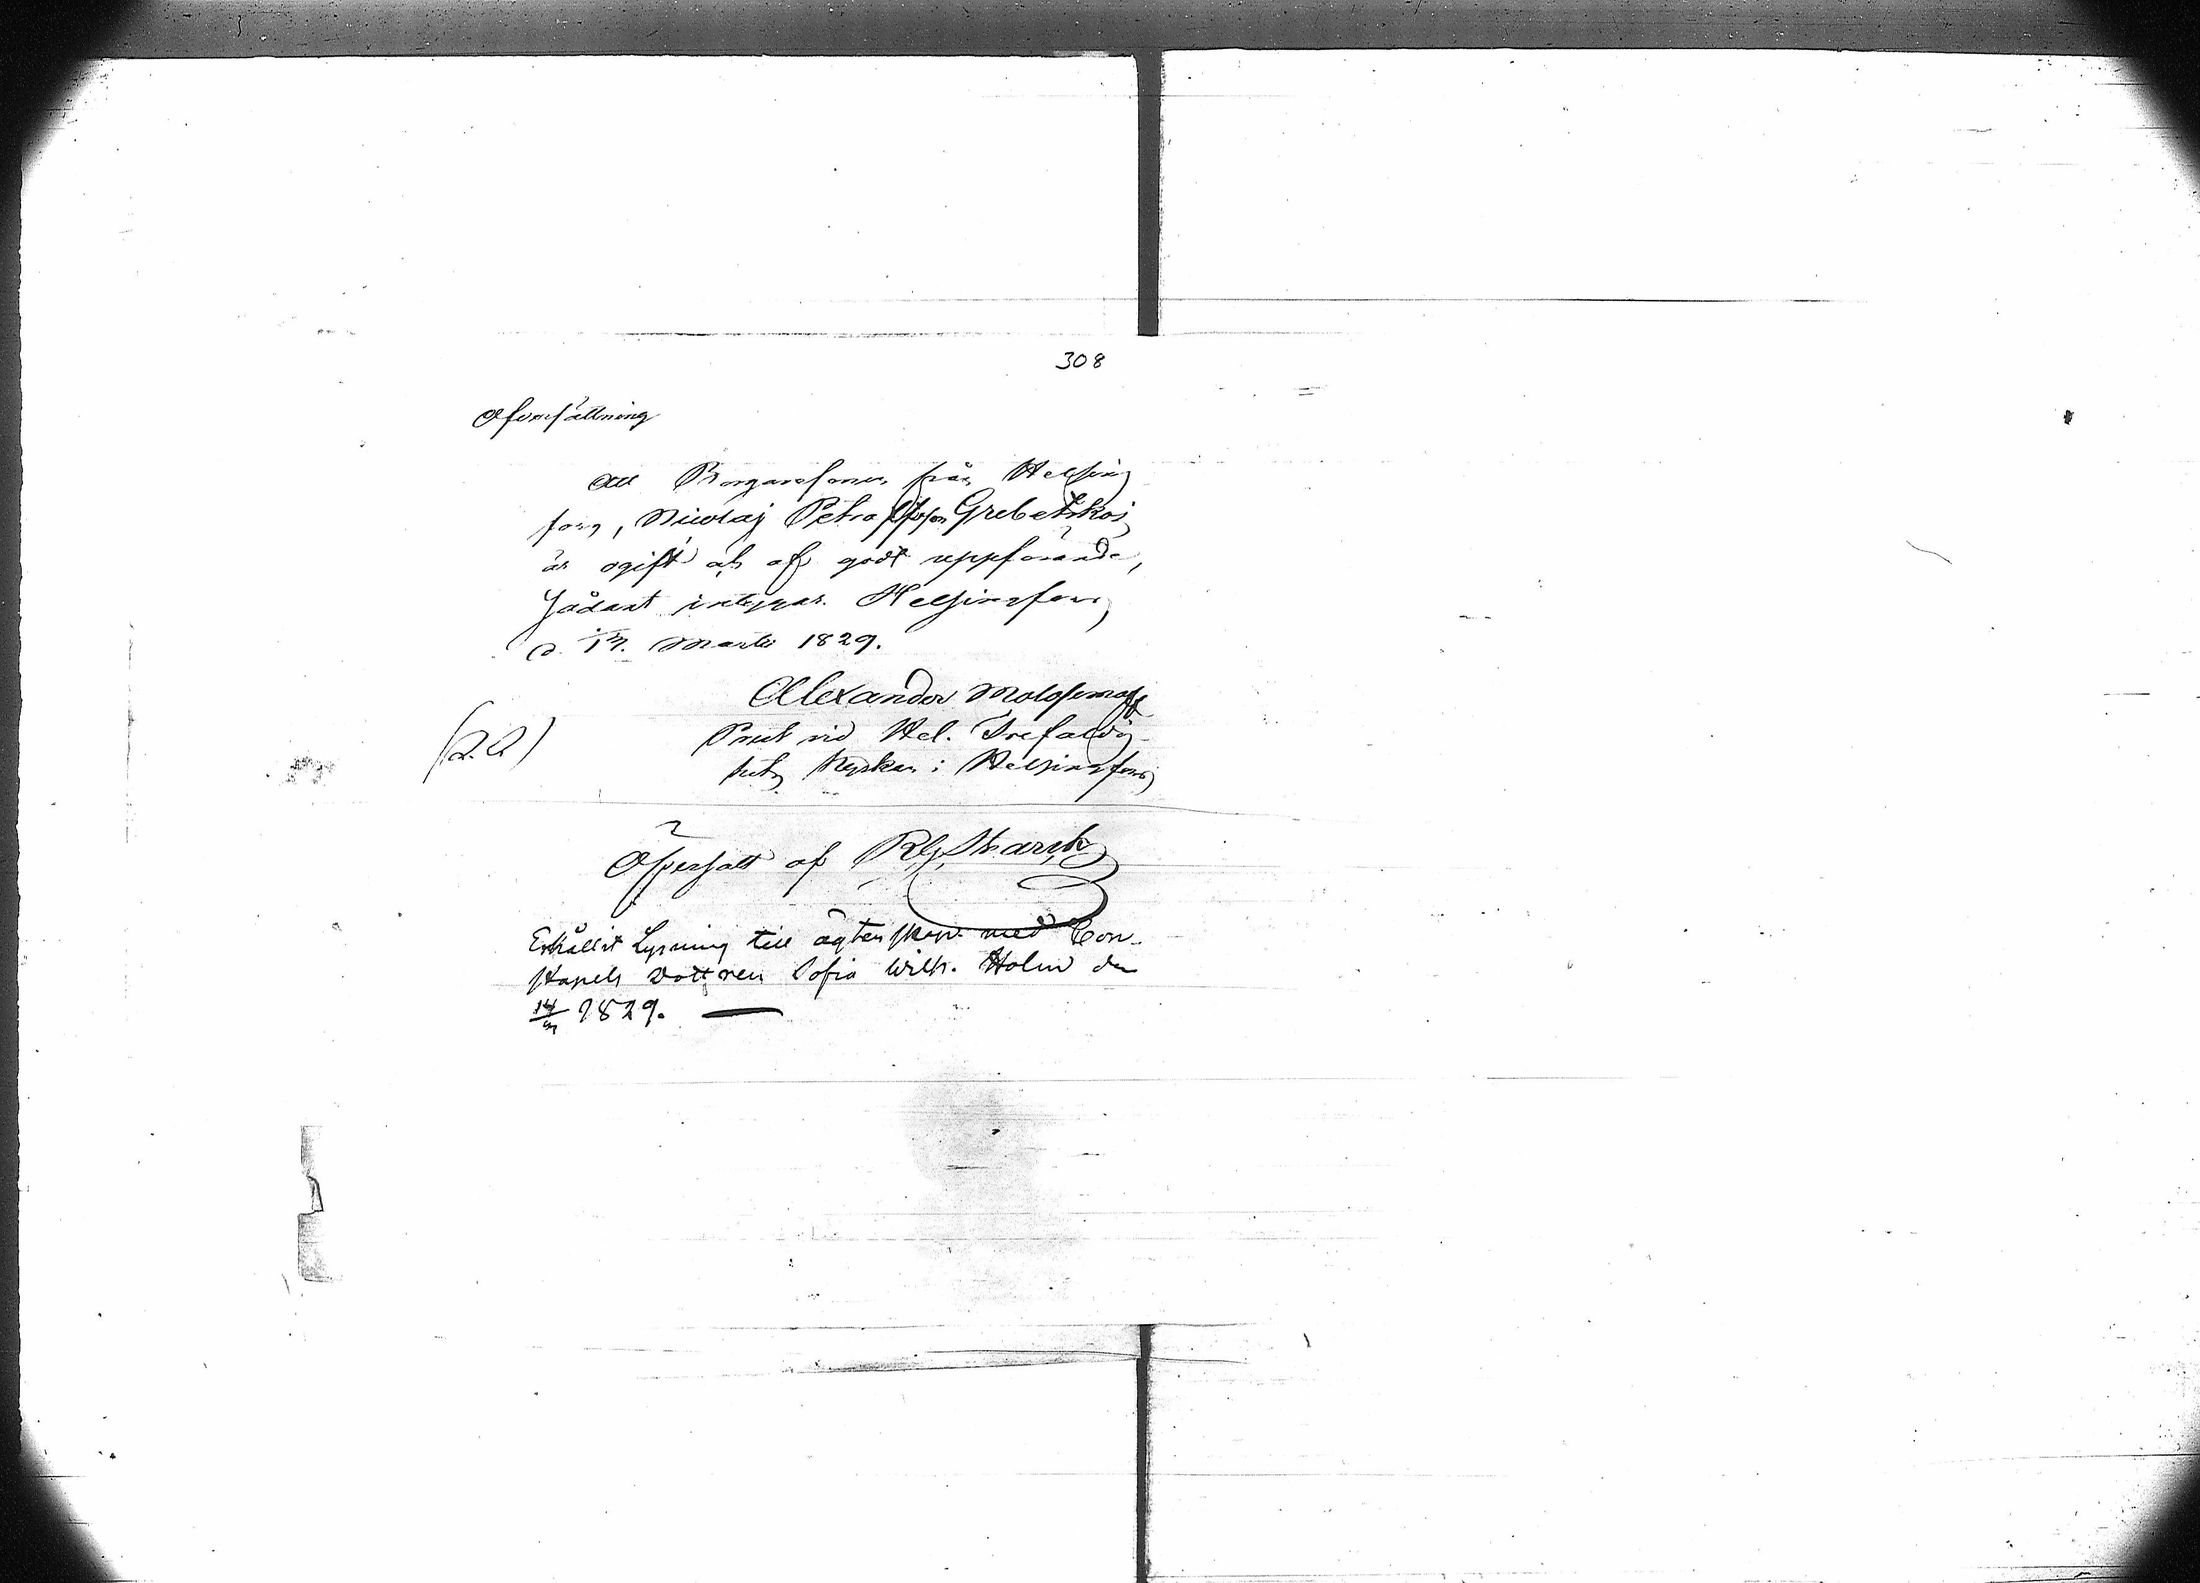 308
Öfversättning
Att Borgaresonen från Helsing
fors, Nicolaj Petroffson Grebetskoj
är ogift och af godt uppförande,
Sådant intygar. Helsingfors,
d. 13. Martii 1829.
Alexander
Prest vid Hel. Trefaldig-
hets Kyrkan i Helsingfors
Öfversatt af
Erhållit Lysning till ägtenskap med Con-
stapels Dottren Sofia Wilh. Holm den
14/3 1829. —